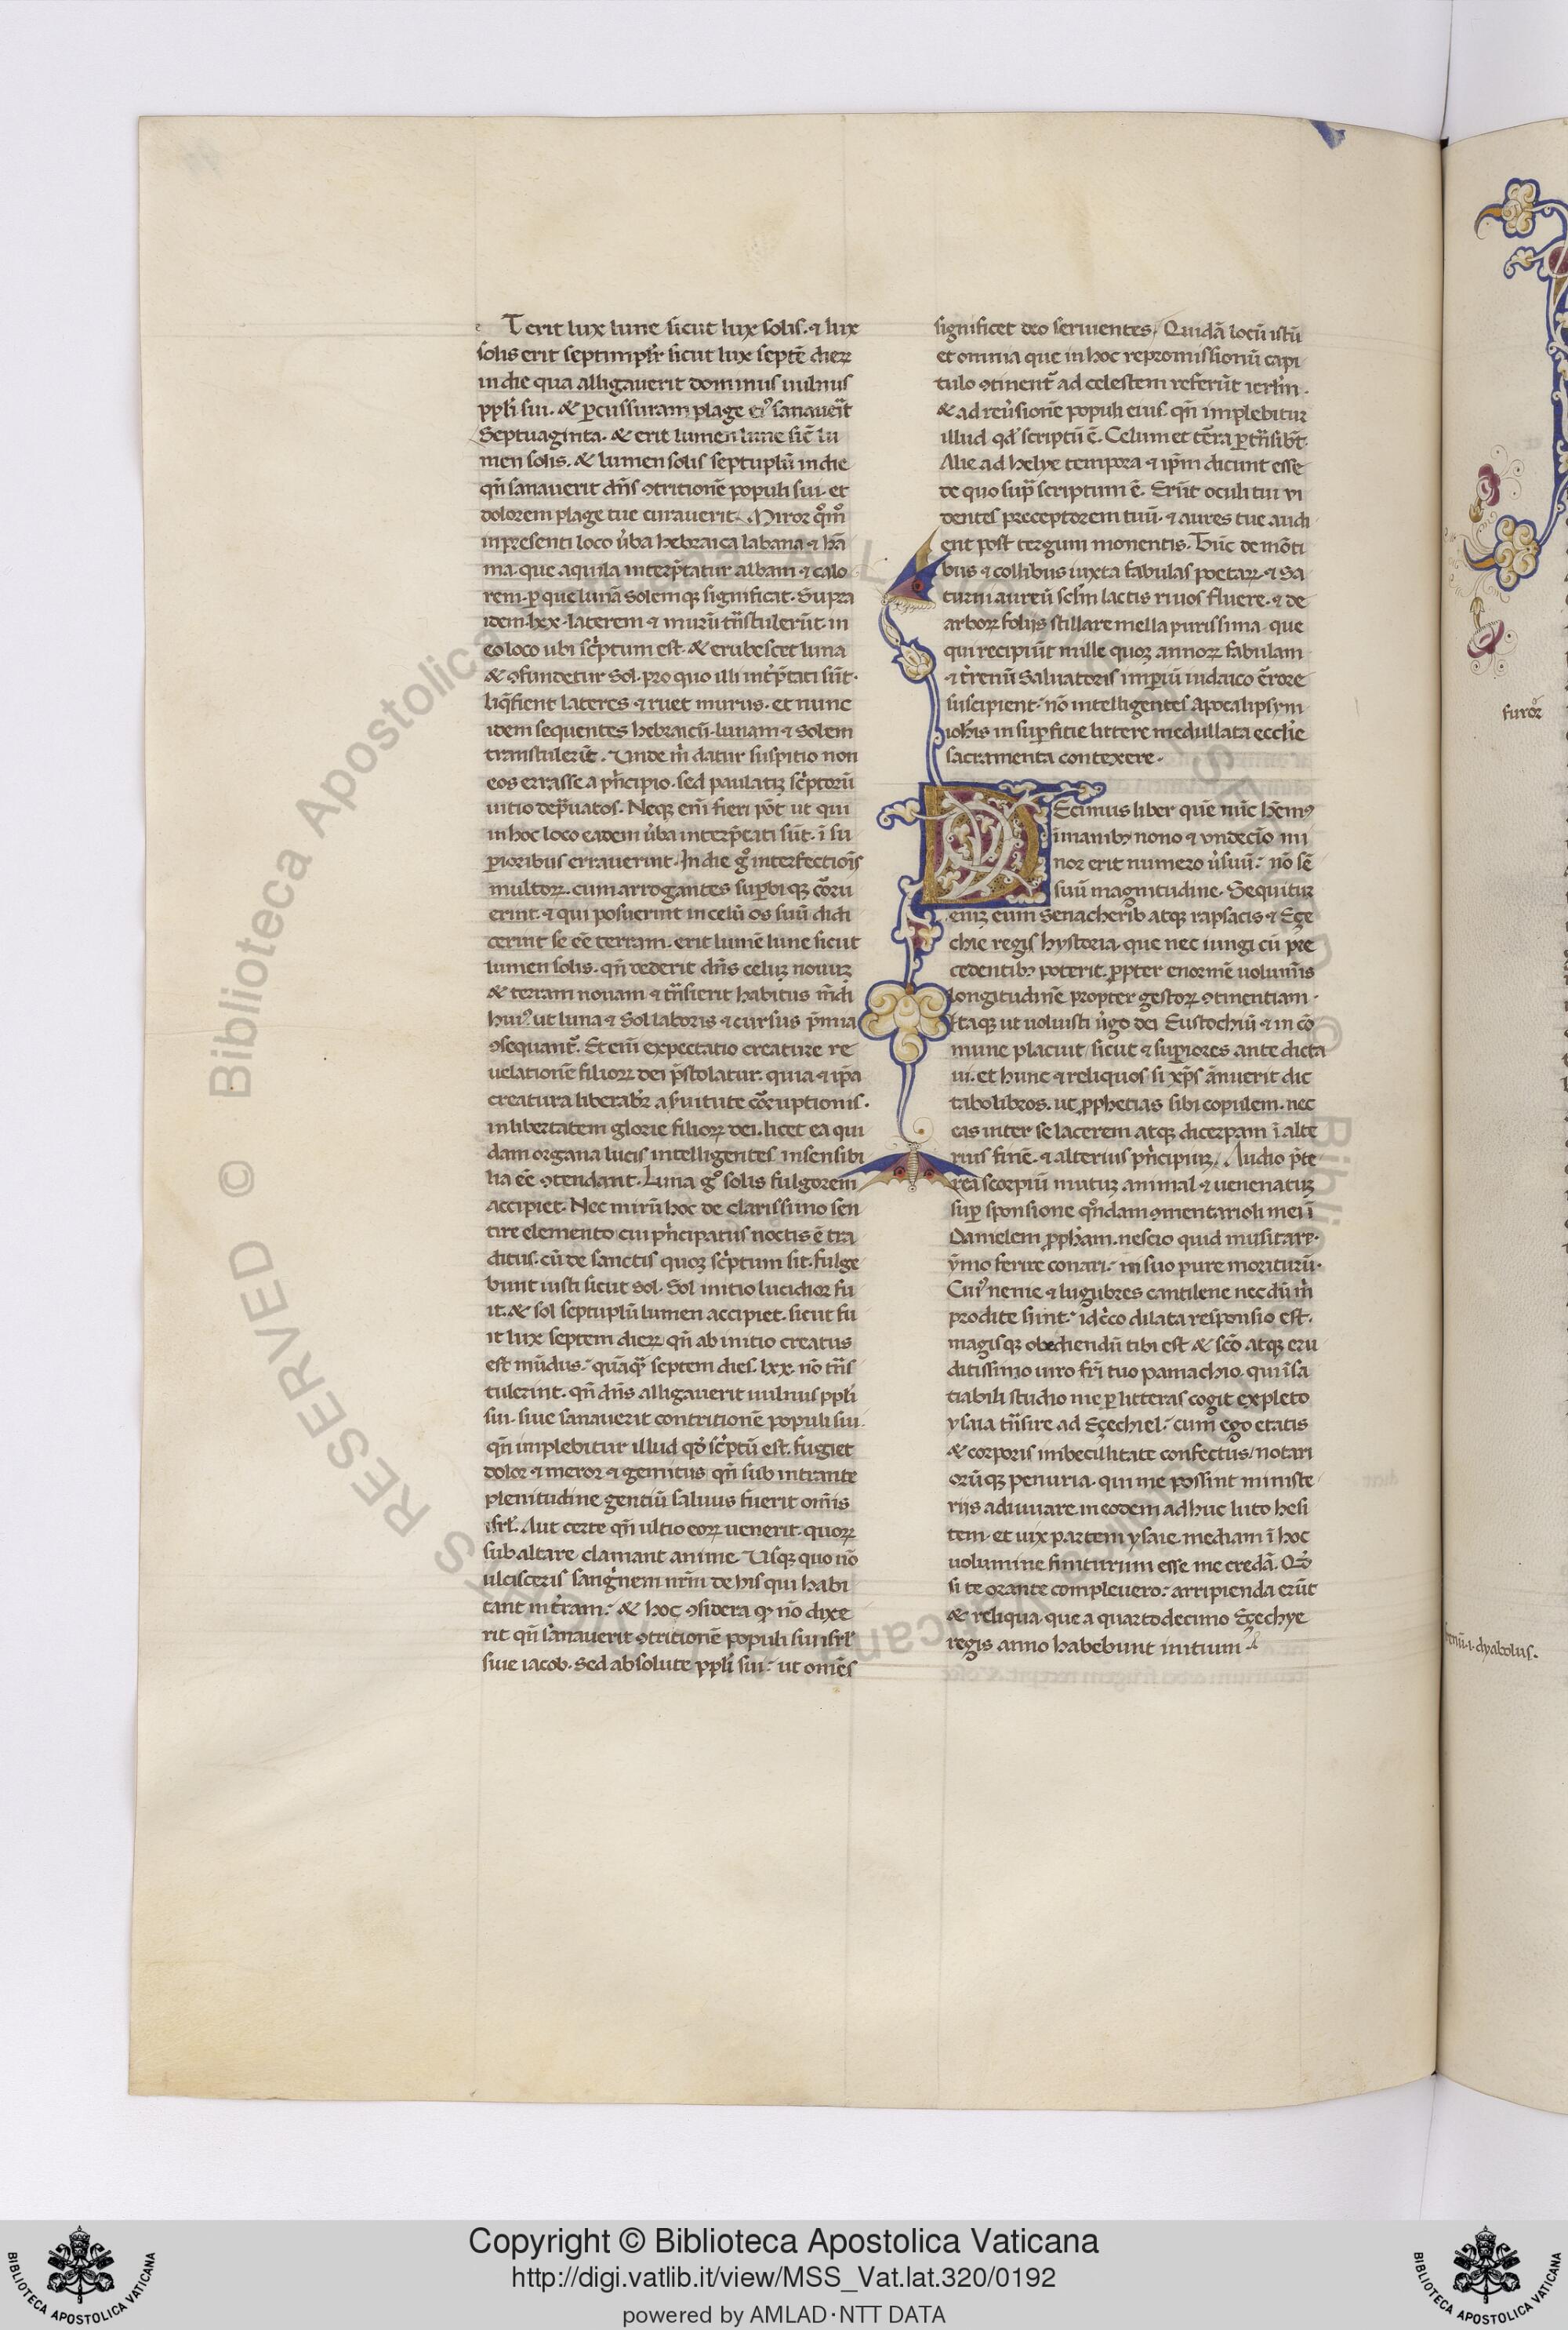 T erit lux lune sicut lux solis. ⁊ lux
solis erit septimpłr sicut lux septē dieꝝ
in die qua alligauerit dominus uulnus
ppłi sui. & ꝑcussuram plage eiꝰ sanauerit
Septuaginta. & erit lumen lune sic̄ lu
men solis. & lumen solis septuplū in die
qn̄ sanauerit dn̄s ꝯtritionē populi sui. et
dolorem plage tue curauerit. Miror qͦmͦ
in presenti loco ūba hebraica labana ⁊ hā
ma. que aquila interp̄tatur albam ⁊ calo
rem. ꝑ que lunā solemqꝫ significat. Supra
idem. lxx. laterem ⁊ murū tn̄stulerūt. in
eo loco ubi sc̓ptum est. & erubescet luna
& ꝯfundetur Sol. pro quo illi int̓p̄tati sūt.
liq̄fient lateres ⁊ ruet murus. et nunc
idem sequentes hebraicū. lunam ⁊ solem
transtulerūt. Unde m̓ datur suspitio non
eos errasse a pn̓cipio. sed paulatiꝫ sc̓ptorū
uitio dep̄uatos. Neqꝫ eni᷒ fieri pōt ut qui
in hoc loco eadem ūba interp̄tati sūt. ī su
ꝑioribus errauerint. In die gͦ interfectiois̄
multoꝝ. cum arrogantes suꝑbiqꝫ cor̄u
erint. ⁊ qui posuerint in celū os suū didi
cerint se ēē terram. erit lumē lune sicut
lumen solis. qn̄ dederit dn̄s celuꝫ nouuꝫ
& terram nouam ⁊ tn̄sierit habitus mūdi
huiꝰ. ut luna ⁊ Sol laboris ⁊ cursus p̄mia
ꝯsequant᷑. Et eni᷒ expectatio creature re
uelationē filioꝝ dei p̄stolatur. quia ⁊ ip̄a
creatura liberabr̄ a ſuitute corruptionis.
in libertatem glorie filioꝝ dei. licet ea qui
dam organa lucis intelligentes insensibi
lia ēē ꝯtendant. Luna gͦ solis fulgorem
accipiet. Nec mirū hoc de clarissimo sen
tire elemento cui pn̓cipatus noctis ē tra
ditus. cū de sanctis quoqꝫ sc̓ptum sit. fulge
bunt iusti sicut sol. Sol initio lucidior fu
it. & sol septuplū lumen accipiet. sicut fu
it lux septem dieꝝ qn̄ ab initio creatus
est mūdus. quāqᷓ septem dies. lxx. nō tn̄s
tulerint. qn̄ dn̄s alligauerit uulnus ppłi
sui. siue sanauerit contritionē populi sui.
qn̄ implebitur illud qd̓ sc̓ptū est. fugiet
dolor ⁊ meror ⁊ gemitus qn̄ sub intrante
plenitudine gentiū saluus fuerit om̄is
isrł. Aut certe qn̄ ultio eoꝝ uenerit. quoꝝ
sub altare clamant anime. Usqꝫ quo nō
ulcisceris sangn̓em nr̄m de his qui habi
tant in t̓ram. & hoc ꝯsidera qꝫ nō dixe
rit qn̄ sanauerit ꝯtritionē populi sui isrł
siue iacob. Sed absolute ppłi sui. ut omēs
significet deo seruientes. Quidā locū istū
et omnia que in hoc repromissionū capi
tulo ꝯtinent᷑ ad celestem referūt ierłm.
& ad reūsionē populi eius. qn̄ implebitur
illud qd̓ scriptū ē. Celum et t̄ra ꝑtn̄sibt᷑.
Alie ad helye tempora ⁊ ip̄m dicunt esse
de quo supᷓ scriptum ē. Erūt oculi tui ui
dentes preceptorem tuū. ⁊ aures tue audi
ent post tergum monentis. Tūc de mōti
bus ⁊ collibus iuxta fabulas poetaꝝ. ⁊ Sa
turni aureū sełm lactis riuos fluere. ⁊ de
arboꝝ foliis stillare mella purissima. que
qui recipiūt mille quoqꝫ annoꝝ fabulam
⁊ t̓renū Saluatoris imꝑiū iudaico er̄rore
suscipient. nō intelligentes Apocalipsym
ioh̄is in suꝑfitie littere medullata ecclie̓
sacramenta contexere.
DEcimus liber quē nūc hēmꝰ
imanibꝫ nono ⁊ undecīo mi
nor erit numero ūsuū. nō sē
suū magnitudine. Sequitur
eniꝫ eum Senacherib atqꝫ rapsacis ⁊ Eçe
chie regis hystoria. que nec iungi cū pre
cedentibꝫ poterit. ꝓpter enormē uolumīs
longitudinē propter gestoꝝ ꝯtinentiam.
Itaqꝫ ut uoluisti ūgo dei Eustochiū ⁊ in cō
mune placuit sicut ⁊ suꝑiores ante dicta
ui. et hunc ⁊ reliquos si xp̄s ānuerit dic
tabo libros. ut ꝓphetias sibi copulem. nec
eas inter se lacerem atqꝫ dicerpam ī alte
rius finē. ⁊ alterius pn̓cipiuꝫ. Audio p̄te
rea scorpiū mutuꝫ animal ⁊ uenenatuꝫ
suꝑ sponsione qͦndam ꝯmentarioli mei ī
Danielem ꝓph̄am. nescio quid musitare.
ymo ferire conari. in suo pure moriturū.
Cuiꝰ nenie ⁊ lugubres cantilene nec dū m̓
prodite sunt. idc̓co dilata responsio est.
magisqꝫ obediendū tibi est & scō atqꝫ eru
ditissimo uiro fri̓ tuo pamachio. qui īsa
tiabili studio me ꝑ litteras cogit expleto
ysaia tn̄sire ad Eçechiel. cum ego etatis
& corporis imbecillitate confectus/ notari
orūqꝫ penuria. qui me possint ministe
riis adiuuare. in eodem adhuc luto hesi
tem. et uix partem ysaie mediam ī hoc
uolumine finiturum esse me credā. Qd̓
si te orante compleuero: arripienda erūt
& reliqua que a quartodecimo Eçechye
regis anno habebunt initium
furor
dyabolus.
© Biblioteca Apostolica Vaticana
Copyright © Biblioteca Apostolica Vaticana
http://digi.vatlib.it/view/MSS_Vat.lat.320/0192
powered by AMLAD·NTT DATA
BIBLIOTECA APOSTOLICA VATICANA
BIBLIOTECA APOSTOLICA VATICANA